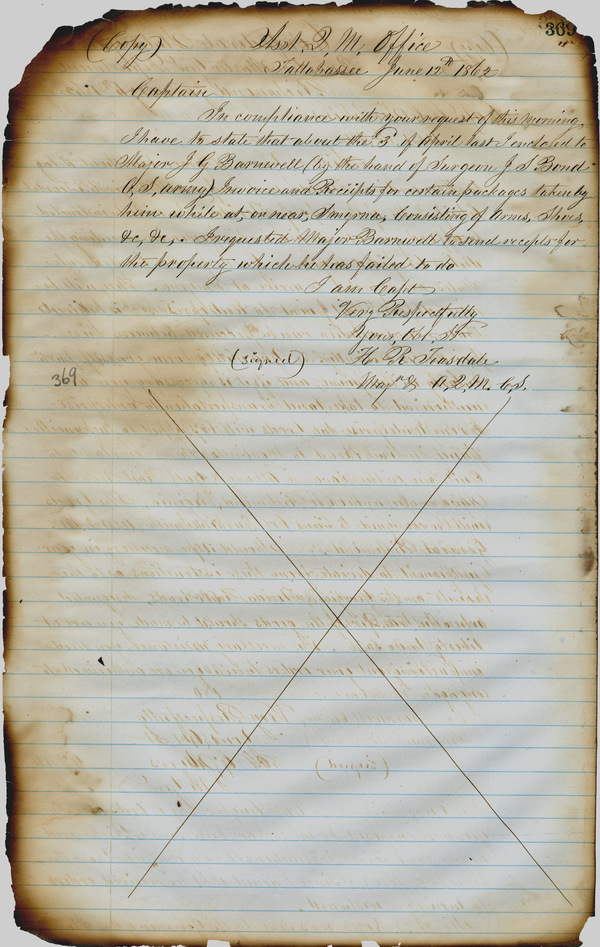 369
(Copy) Asst. Q. M. Office
Tallahassee June 12th 1862
Captain
In compliance with your request of this morning
I have to state that about the 3d of April last I enclosed to
Major J G Barnwell (by the hand of Surgeon J S Bond
C, S, army) Invoice and Receipts for certain packages taken by
him while at, or near, Smyrna, Consisting of Arms, Shoes,
&c, &c,. I requested Major Barnwell to send receipts for
the property which he has failed to do
I am Capt
Very Respectfully
Your, Ob, St
(signed) H. R. Teasdale
369
Maj & A. Q. M. C, S.